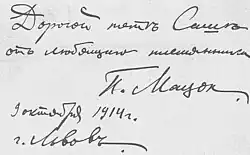 Дорогой тетѣ Сашѣ
отъ любящаго племянника
П. Мацок
9 октября 1914 г.
г. Львовъ.